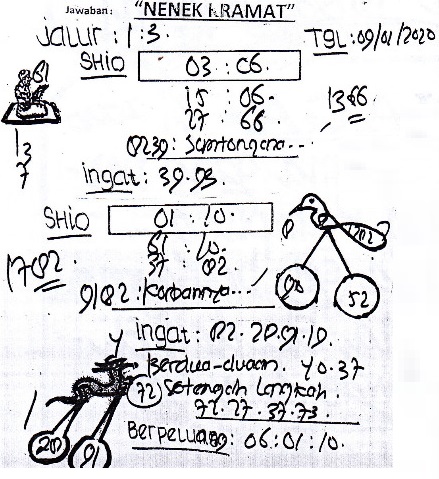 Jawaban: "NENEK KRAMAT"
Jalur: 1:3.
TGL: 09/01/2020
SHIO 03 : 06.
15 : 06.
27 : 66.
1366
13
7
0239:
ingat: 39.93.
SHIO 01 : 10.
61 : 10.
37 : 02.
1702
9102: Korbannya...
52
ingat: 02. 20.91.19.
Berdua-duaan. 40.37
72 Setengah Langkah.
72.27.37.73.
Berpeluang: 06:01:10.
20
91